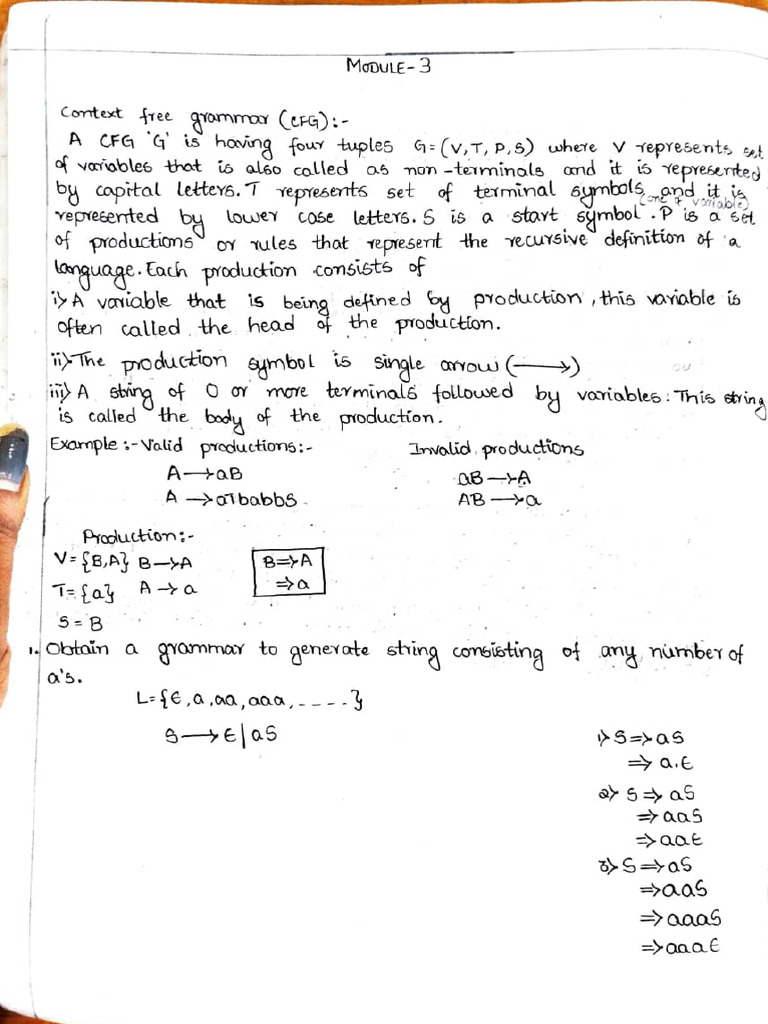 MODULE-3
Context free grammar (CFG):-
A CFG 'G' is having four tuples G=(V,T,P,S) where V represents set
of variables that is also called as non-terminals and it is represented
by capital letters. T represents set of terminal symbols and it is
(one of variable)
represented by lower case letters. S is a start symbol. P is a set
of productions or rules that represent the recursive definition of a
language. Each production consists of
i) A variable that is being defined by production, this variable is
often called the head of the production.
ii) The production symbol is single arrow (⟶)
iii) A string of 0 or more terminals followed by variables: This string
is called the body of the production.
Example:- Valid productions:- Invalid productions
A→aB aB→A
A→aTbabbS AB→a
Production:-
V={B,A} B→A B⇒A
T={a} A→a ⇒a
S=B
1. Obtain a grammar to generate string consisting of any number of
a's.
L={ϵ,a,aa,aaa,-----}
S⟶ϵ|aS
1) S⇒aS
⇒a.ϵ
2) S⇒aS
⇒aaS
⇒aaϵ
3) S⇒aS
⇒aaS
⇒aaaS
⇒aaaϵ